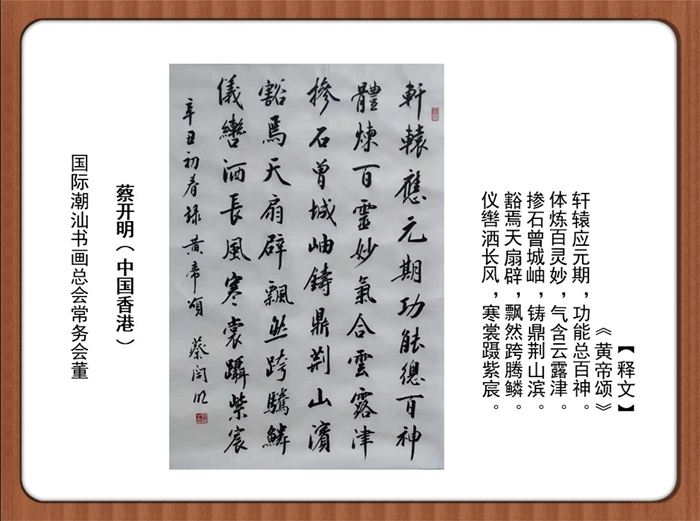 【释文】
《黄帝颂》
轩辕应元期，功能总百神。
体炼百灵妙，气含云露津。
掺石曾城岫，铸鼎荆山滨。
豁焉天扇辟，飘然跨腾鳞。
仪辔洒长风，寒裳蹑紫宸。
軒轅應元期功能總百神
體煉百靈妙氣合雲露津
摻石曾城岫鑄鼎荊山濱
豁焉天扇辟飄然跨騰鱗
儀轡洒長風寒裳躡紫宸
辛丑初春録黄帝頌 蔡開明
蔡开明（中国香港）
国际潮汕书画总会常务会董